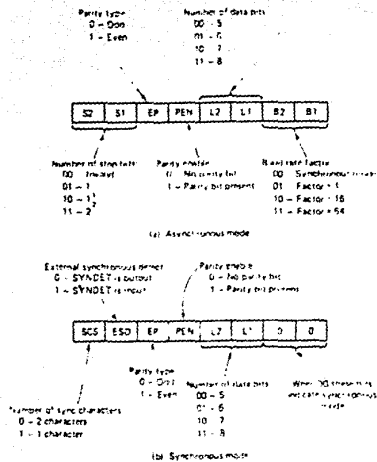 Parity type
0 - Odd
1 - Even
Number of data bits
00 - 5
01 - 6
10 - 7
11 - 8
S2 S1 EP PEN L2 L1 B2 B1
Number of stop bits
00 Invalid
01 - 1
10 - 1
11 - 2
Parity enable
0 - No parity bit
1 - Parity bit present
Baud rate factor
00 Synchronous mode
01 Factor = 1
10 - Factor = 16
11 - Factor = 64
(a) Asynchronous mode
External synchronous detect
0 - SYNDET is output
1 - SYNDET is input
Parity enable
0 - No parity bit
1 - Parity bit present
SCS ESD EP PEN L2 L1 0 0
Number of sync characters
0 - 2 characters
1 - 1 character
Parity type
0 - Odd
1 - Even
Number of data bits
00 - 5
01 - 6
10 - 7
11 - 8
When 00 these bits
indicate synchronous
mode
(b) Synchronous mode